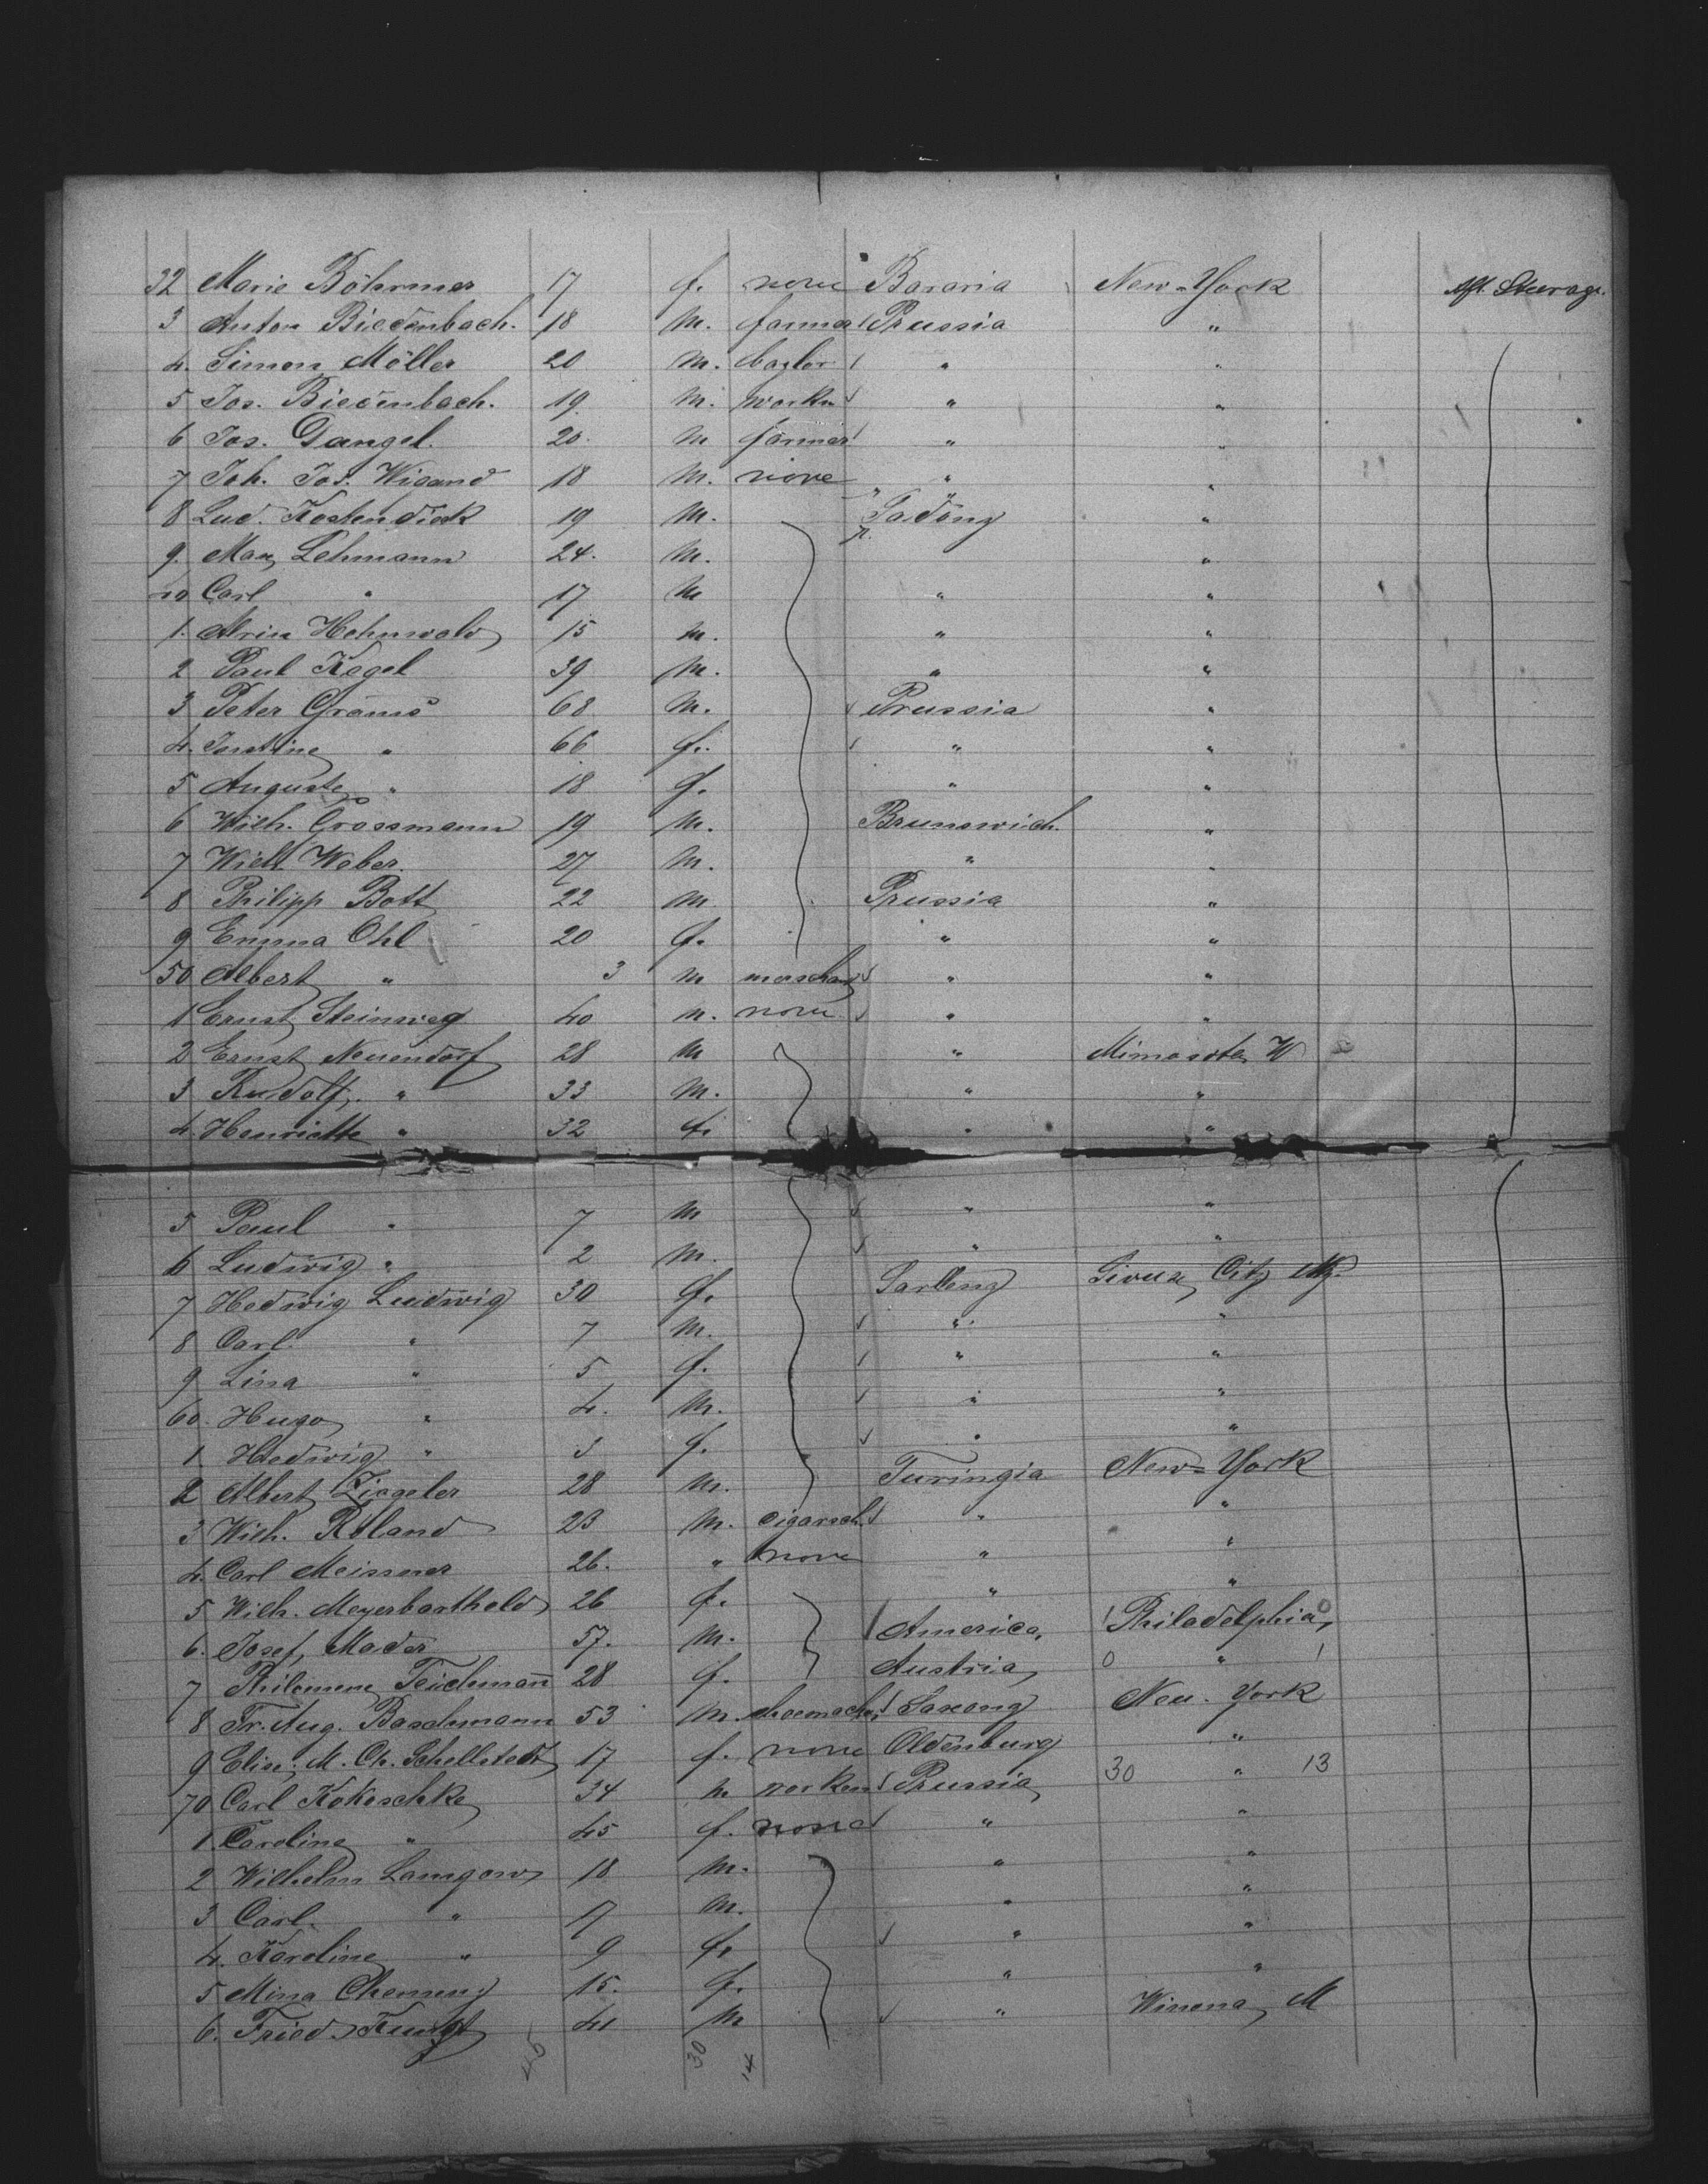 32 Marie Böhrmer 17 f. none Bavaria New-York Aft. Steerage.
3 Anton Biedenbach. 18 m. farmer Prussia "
4. Simon Möller 20 m. " "
5 Jos. Biedenbach. 19. m. workm " "
6 Jos. Dangel. 20. m farmer " "
7 Joh. Jos. Wigand 18 m. none " "
8 Lud. Kostendiek 19 m. "
9. Max Lehmann 24. m. "
10 Carl " 17 m " "
1. Hehnwald 15 m. " "
2 Paul Kegel 39 m. " "
3 Peter Grams 68 m. Prussia "
4. Justine " 66 f. " "
5 Auguste " 18 f. " "
6 Wilh. Grossmann 19 m. Brunswich. "
7 Wilh. Weber. 27 m. " "
8 Philipp Bott 22 m. Prussia "
9 Emma Ohl 20 f. " "
50 Albert " 3 m " "
1 Ernst Steinweg 40 m. none " "
2 Ernst Neuendorf 28 m "
3 Rudolf. " 33 m. " "
4. Henriette " 32 f. " "
5 Paul " 7 m " "
6 Ludwig " 2 m. " "
7 Hedwig Ludwig 30 f. City
8 Carl. " 7 m. " "
9 Lina " 5 f. " "
60. Hugo " 4. m. " "
1. Hedwig " 3 f. " "
2 Albert Ziegeler 28 m. Turingia New-York
3 Wilh. Roland 23 m. " "
4. Carl Meissner 26. " none " "
5 Wilh. Meyerbarthold 26 f. " "
6. Josef Mader 57. m. America, 1 Philadelphia, 0
7 Philomene Teichmann 28 f. Austria, 0 " 1
8 Fr. Aug. Baschmann 53 m. Saxony New-York
9 Elise M. Ch. Schellstedt 17 f. none Oldenburg "
70 Carl Kokoschke 34 m Prussia 30 " 13
1. Caroline " 45 f. none " "
2 Wilhelm Lamgow 18 m. " "
3 Carl. " 17 m. " "
4. Karoline " 9 f. " "
5 Mina 15. f. " "
6. Fried. 41 m " Winona, M
30 14